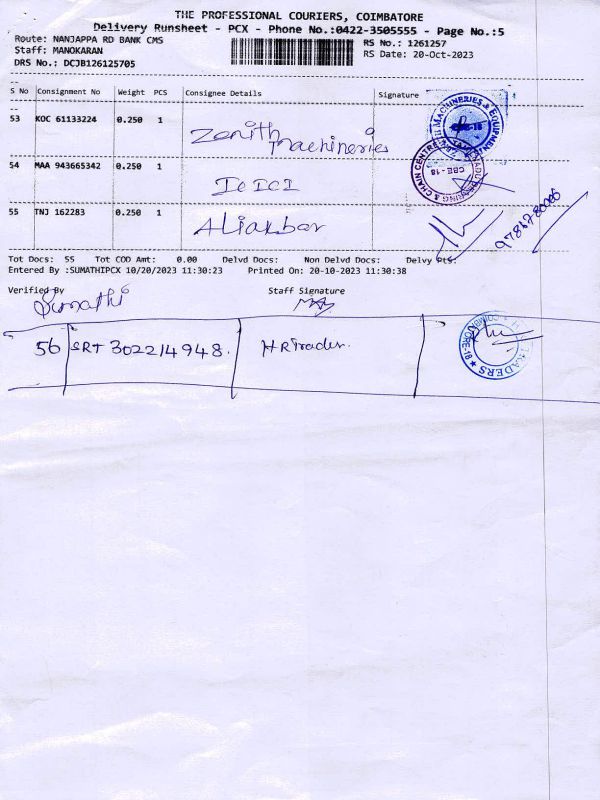 THE PROFESSIONAL COURIERS, COIMBATORE
Delivery Runsheet - PCX - Phone No.:0422-3505555 - Page No.:5
Route: NANJAPPA RD BANK CMS RS No.: 1261257
Staff: MANOKARAN RS Date: 20-Oct-2023
DRS No.: DCJB126125705
S No Consignment No Weight PCS Consignee Details Signature
53 KOC 61133224 0.250 1 Zenith Machineries
54 MAA 943665342 0.250 1 ICICI
CBE - 18
55 TNJ 162283 0.250 1 Aliakbar
Tot Docs: 55 Tot COD Amt: 0.00 Delvd Docs: Non Delvd Docs: Delvy Pts:
Entered By :SUMATHIPCX 10/20/2023 11:30:23 Printed On: 20-10-2023 11:30:38
Verified By Staff Signature
Sumathi
56 SRT 302214948. HR Trader.